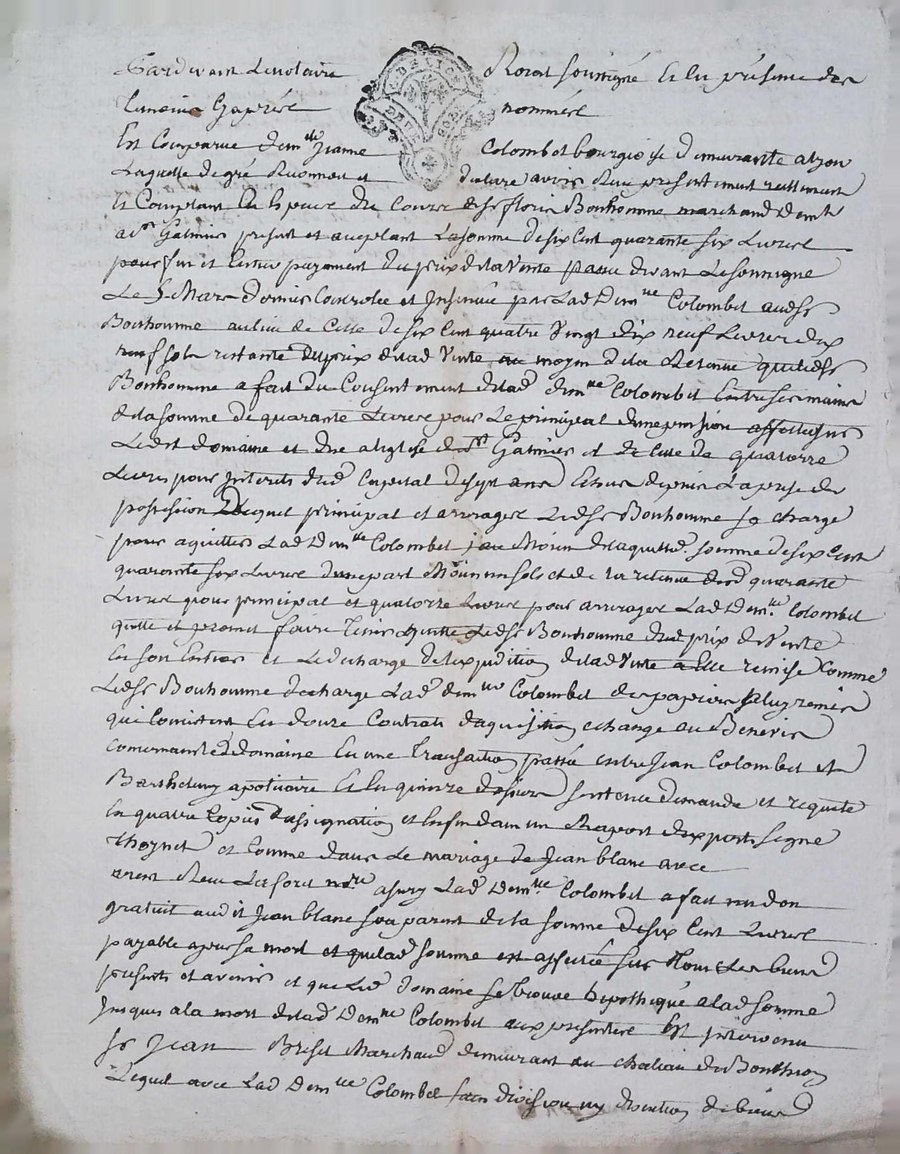 Pardevant Le notaire Royal soussigné et en présence des
Temoins Ci après nommés
Est Comparue dem.lle Jeanne Colombet bourgeoise demeurante a Lyon
Laquelle de gré Reconnoit et declare avoir Reçu presentement reellement
et Comptant En Especes du Cours de Sr fleury Bonhomme marchand demt
a St Galmier present et aceptant La somme de six Cent quarante six Livres
pour fin et Entier payement du prix de la Vente passée devant Le soussigné
Le 5 Mars dernier Controlée et Insinuée par Lad. Dem.lle Colombet aud Sr
Bonhomme au lieu de Celle de six Cent quatre Vingt dix neuf Livres dix
neuf sols restante du prix de lad Vente au moyen de la Retenue que led Sr
Bonhomme a fait du Consentement de lad dem.lle Colombet Entre ses mains
de la somme de quarante Livres pour Le principal d'une pension affectée sur
Ledit domaine et due a l'eglise de St Galmier et de Celle de quatorze
Livres pour Interets dud Capital de sept ans Echus depuis La prise de
possession Duquel principal et arrerages Led Sr Bonhomme se charge
pour aquitter Lad Dem.lle Colombet au Moien de laquelle somme de six Cent
quarante six Livres d'une part et de la retenue desd quarante
Livres pour principal et quatorze Livres pour arrerages Lad Dem.lle Colombet
quitte et promet faire Tenir quitte Led Sr Bonhomme dud prix de Vente
En son Entier et Le decharge de l'expedition de lad Vente a Elle remise Comme
Led Sr Bonhomme decharge Lad dem.lle Colombet des papiers a luy remis
qui Consistent En douze Contrats d'aquisition echange ou Benevis
concernants Led domaine En une Transaction passée entre Jean Colombet et
Barthelemy apoticaire Et En quinze sentence demande et requete
En quatre Copies d'assignation et Enfin dans un Raport d'expert signé
Thoynet et Comme dans Le mariage de Jean blanc avec
Reçu Laforet no.re a sury Lad Dem.lle Colombet a fait un don
gratuit aud it Jean blanc son parent de la somme de six Cent Livres
payable apres sa mort et que lad somme est assurée sur Tous Les biens
presents et avenir et que Led Domaine se trouve hipothequé a lad somme
Jusques a la mort de lad Dem.lle Colombet aux presentes Est intervenu
Sr Jean Marchand demeurant au chateau de Bonthéon
Lequel avec Lad Dem.lle Colombet sans division ny discution de biens